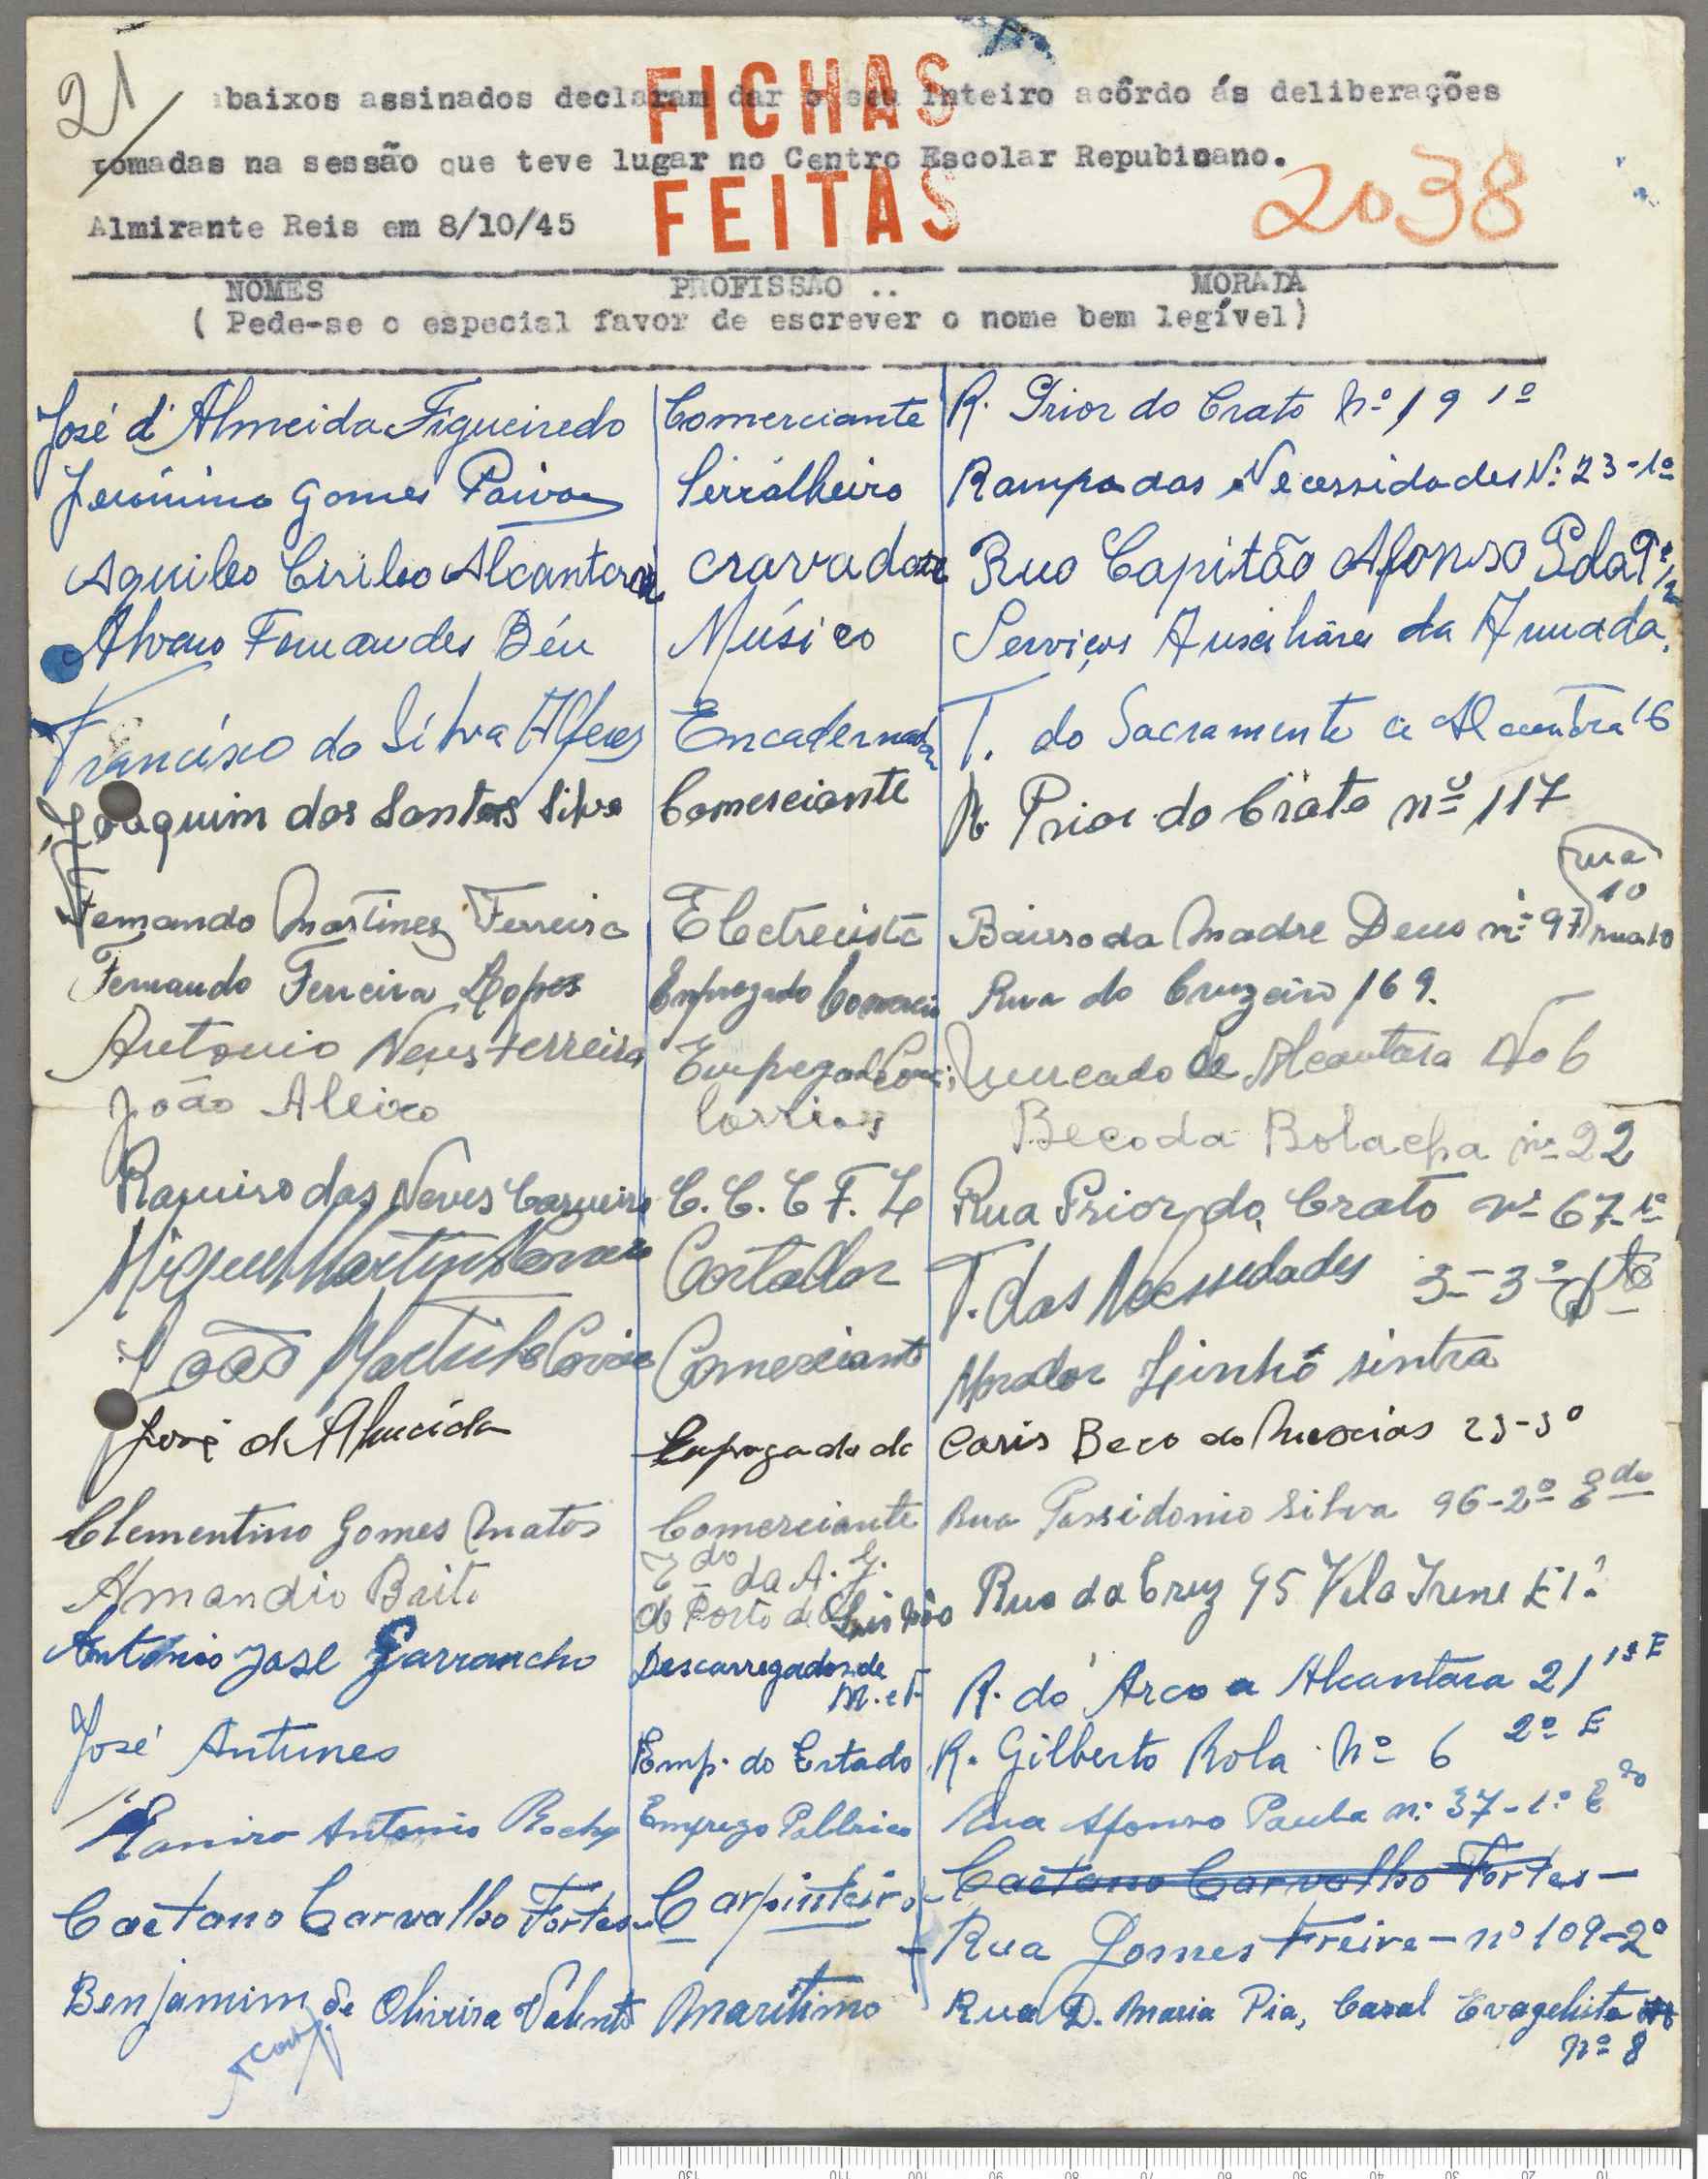 21
FICHAS
baixos assinados declaram dar o seu inteiro acôrdo ás deliberações
tomadas na sessão que teve lugar no Centro Escolar Repubicano.
FEITAS
2038
Almirante Reis em 8/10/45
NOMES PROFISSÃO .. MORADA
( Pede-se o especial favor de escrever o nome bem legível)
José d'Almeida Figueiredo Comerciante R. Prior do Crato Nº 19 1º
Jerónimo Gomes Paiva Serralheiro Rampa das Necessidades Nº 23-1º
Aquileo Cirileo Alcantara cravador Rua Capitão Afonso
Alvaro Fernandes Béu Músico Serviços Auxiliares da Armada.
Francisco da Silva Alferes Encadernador T. do Sacramento a Alcantra 16
Joaquim dos Santos Silva Comerciante R. Prior do Crato nº 117
rua
10
Fernando Martinez Ferreira Electrecista Bairro da Madre Deus nº 97 rua 10
Fernando Ferreira Lopes Empregado Comercio Rua do Cruzeiro 169.
Antonio Neves Ferreira Empregado Comerci Mercado de Alcantara No 6
João Aleixo Corrios Beco da Bolacha nº 22
Ramiro das Neves Carneiro C. C. C F. L Rua Prior do Crato nº 67-1º
Miguel Martins Correia Cortador T. das Necessidades 3-3º Dto
João Martinho Correia Comerciante Morador Linhó sintra
José de Almeida Empregado da Caris Beco do Mexias 23-3º
Clementino Gomes Matos Comerciante Rua Possidonio Silva 96-2º Edo
Amandio Brito Edo da A. G.
do Porto de Lisbôa Rua da Cruz 95 Vila Irene E 1º
Antonio José Garrancho Descarregador de
M. e T. R. do Arco a Alcantara 21 1º E
José Antunes Emp. do Estado R. Gilberto Rola Nº 6 2º E
Ramiro Antonio Rocha Emprego Publico Rua Afonso Paula nº 37-1º Edo
Caetano Carvalho Fortes - Carpinteiro - Caetano Carvalho Fortes -
- Rua Gomes Freire - nº 109-2º
Benjamim de Oliveira Valente Maritimo Rua D. Maria Pia, Casal Evagelista
nº 8